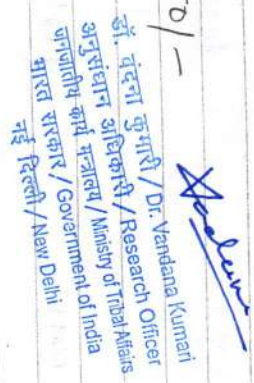 0/-
डॉ. वंदना कुमारी / Dr. Vandana Kumari
अनुसंधान अधिकारी / Research Officer
जनजातीय कार्य मंत्रालय / Ministry of Tribal Affairs
भारत सरकार / Government of India
नई दिल्ली / New Delhi